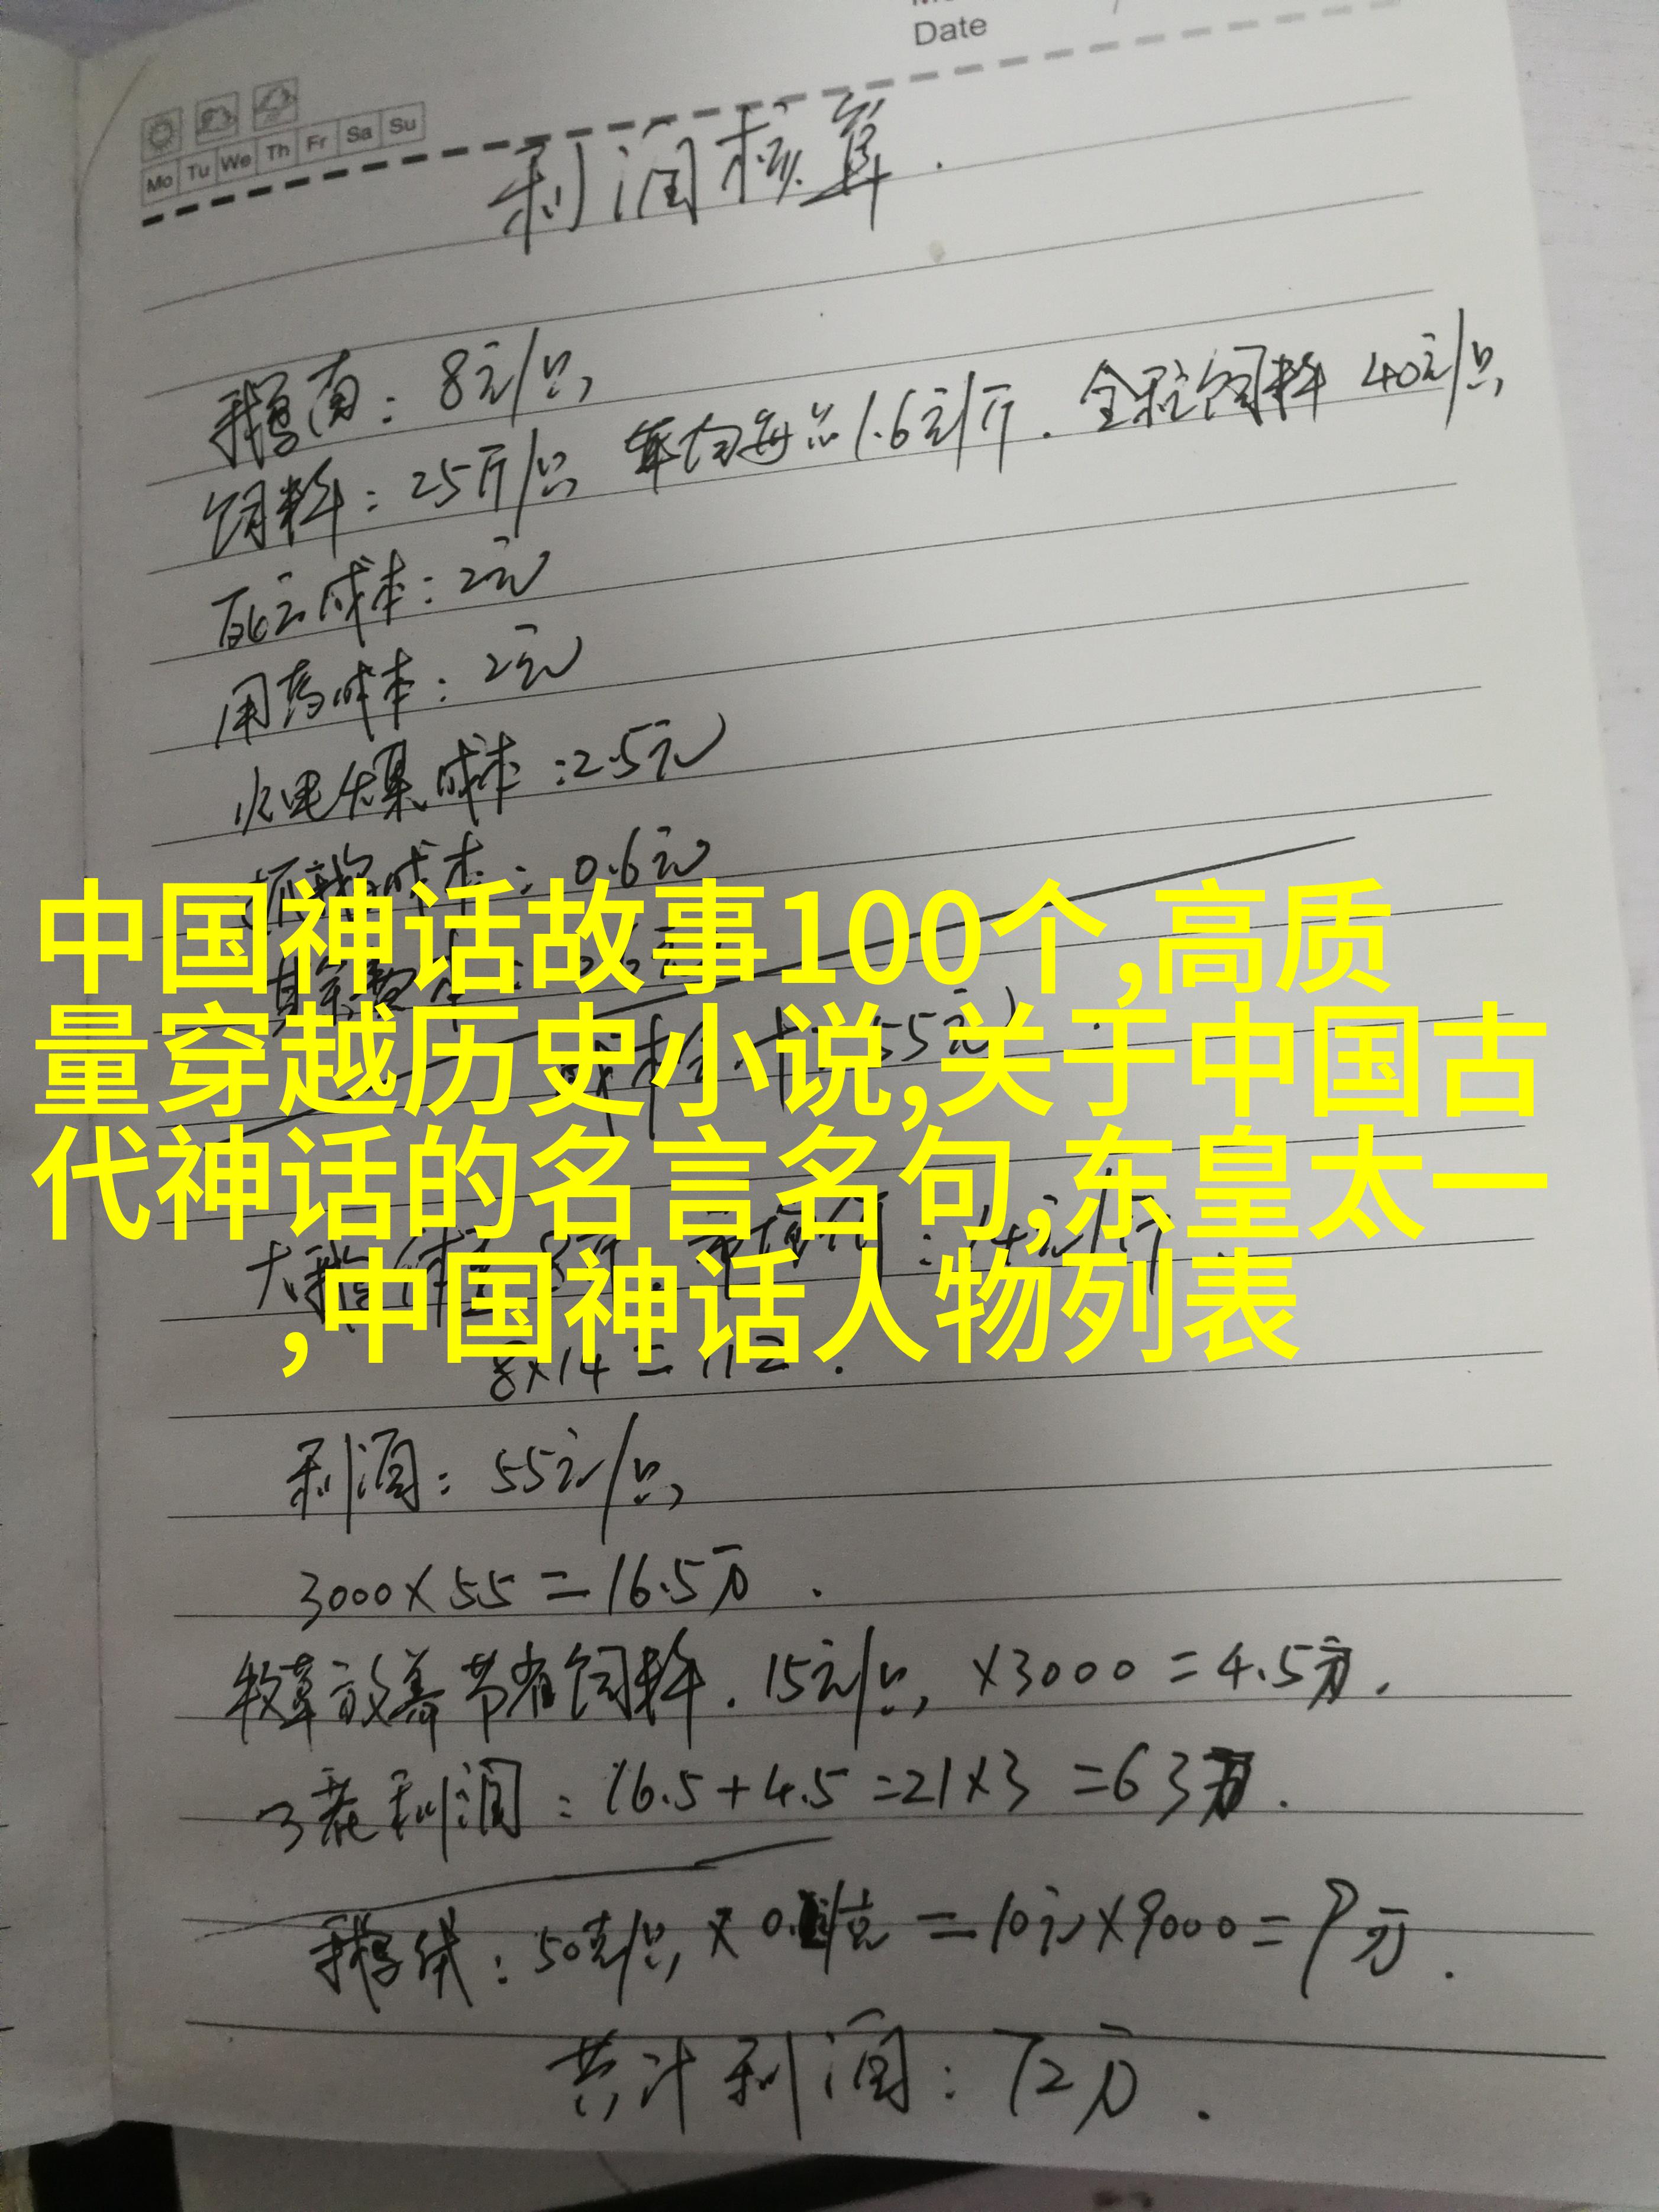 Date
Mo Tu We Th Fr Sa Su
利润核算.
鹅苗: 8元/只
饲料: 25斤/只 1.6元/斤. 全程饲料 40元/只
死亡成本: 2元
用药成本: 2元
水电煤成本: 2.5元
成本: 0.6元
中国神话故事100个,高质
量穿越历史小说,关于中国古
代神话的名言名句,东皇太一
,中国神话人物列表
8×14=112.
利润: 55元/只
3000×55=16.5万.
牧草放养节省饲料. 15元/只, ×3000=4.5万.
3茬利润: 16.5+4.5=21×3=63万.
鹅绒: 50克/只 =10元×9000=9万.
共计利润: 72万.